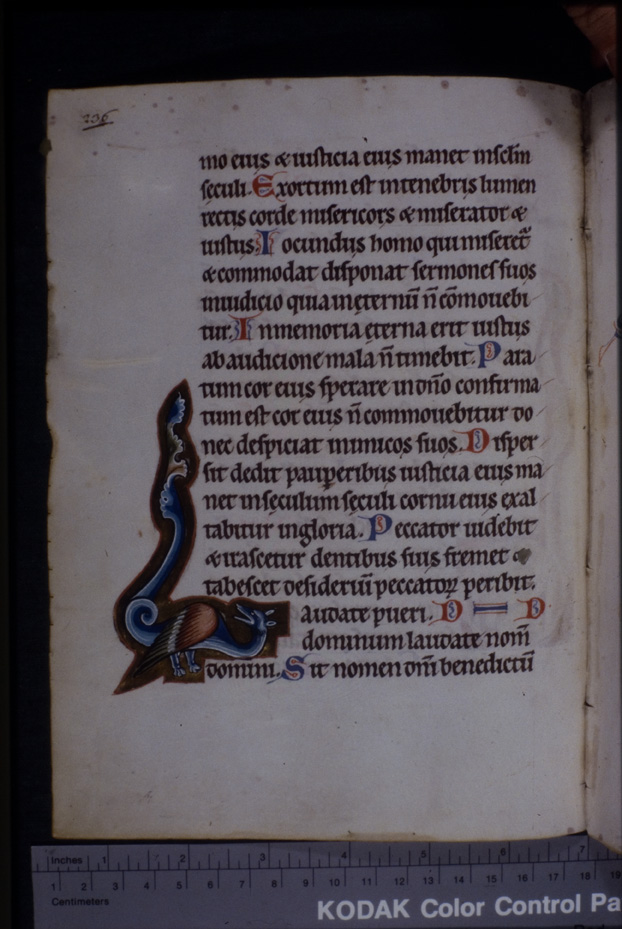 236
mo eius & iusticia eius manet insclm̄
seculi. Exortum est intenebris lumen
rectis corde misericors & miserator &
iustus. Iocundus homo qui miseret̄
& commodat disponat sermones suos
iniudicio quia inęternū n̄ cōmouebi
tur. Inmemoria ęterna erit iustus
abaudicione mala n̄ timebit. Para
tum cor eius sperare in dn̄o confirma
tum est cor eius n̄ commouebitur do
nec despiciat inimicos suos. Disper
sit dedit pauperibus iusticia eius ma
net inseculum seculi cornu eius exal
tabitur ingloria. Peccator uidebit
& irascetur dentibus suis fremet &
tabescet desideriū peccatoꝝ peribit.
Laudate pueri. D D
dominum laudate nom̄
domini. Sit nomen dn̄i benedictū
Inches 1 2 3 4 5 6 7
1 2 3 4 5 6 7 8 9 10 11 12 13 14 15 16 17 18 19
Centimeters
KODAK Color Control Pa